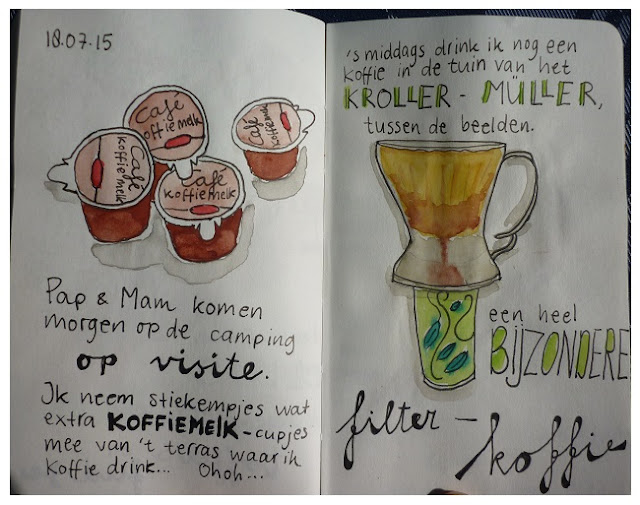 18.07.15
Café
koffiemelk
Café
koffiemelk
Café
koffiemelk
Café
koffiemelk
Pap & Mam komen
morgen op de camping
op visite.
Ik neem stiekempjes wat
extra KOFFIEMELK-cupjes
mee van 't terras waar ik
koffie drink... Ohoh...
's middags drink ik nog een
koffie in de tuin van het
KRÖLLER - MÜLLER,
tussen de beelden.
een heel
BIJZONDERE
filter-
koffie